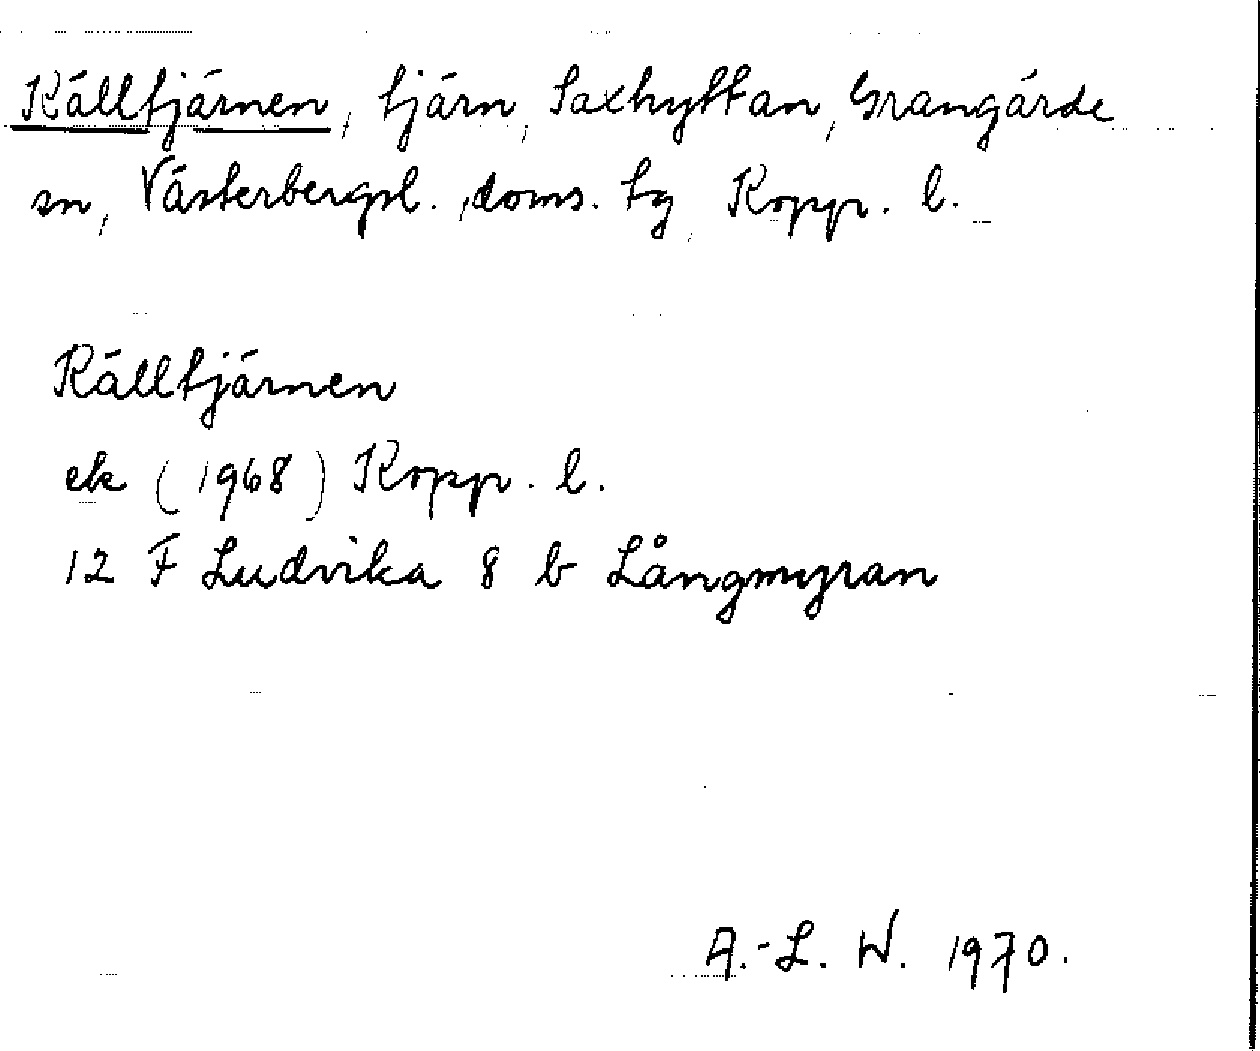 Källtjärnen, tjärn, Saxhyttan, Grangärde
sn, Västerbergsl. doms. tg, Kopp. l.
Källtjärnen
ek (1968) Kopp. l.
12 F Ludvika 8 b Långmyran
A.-L. W. 1970.